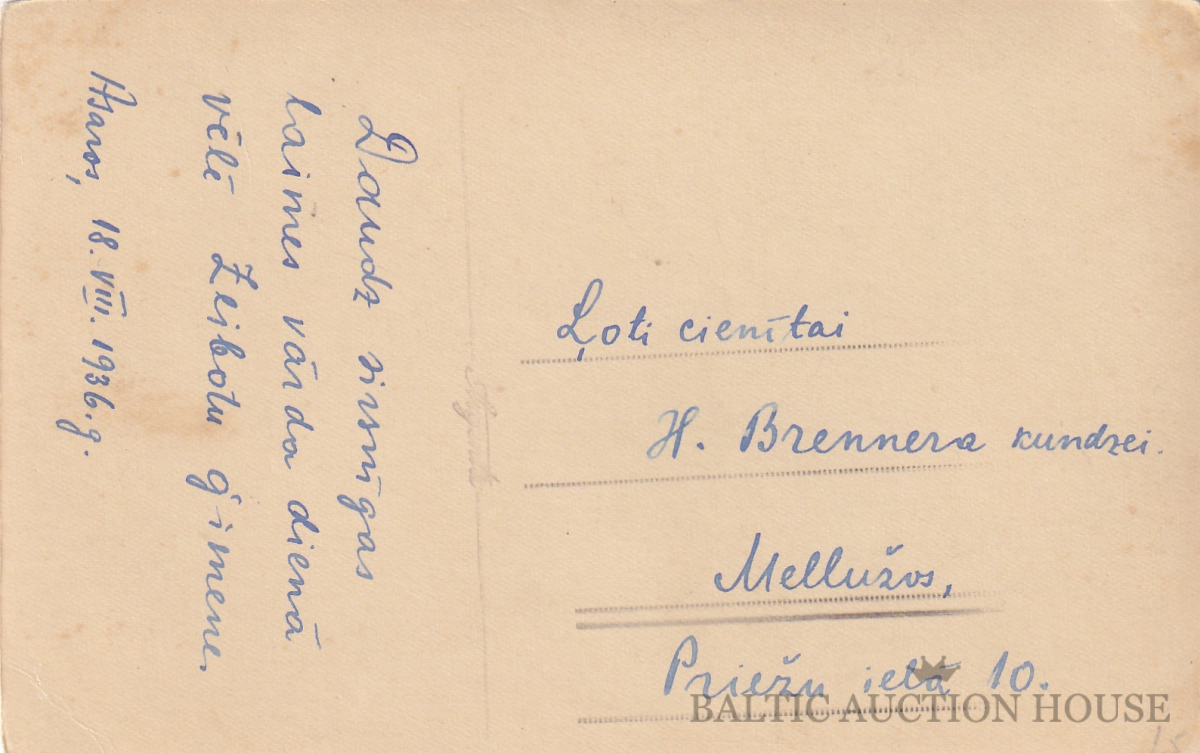 Daudz sirsnīgas
laimes vārda dienā
vēlē Zeibotu ģimene.
Asaros, 18. VIII. 1936. g.
Ļoti cienītai
H. Brennera kundzei.
Mellužos,
Priežu ielā 10.
BALTIC AUCTION HOUSE
15